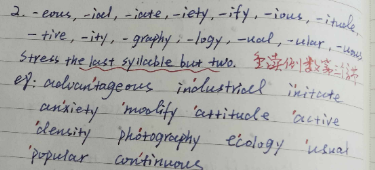 2. -eous, -ial, -iate, -iety, -ify, -ious, -itude,
-tive, -ity, -graphy, -logy, -ual, -ular, -uous
Stress the last syllable but two. 重读倒数第三音节
eg: advantageous industrial initate
anxiety modify attitude active
density photography ecology usual
popular continuous